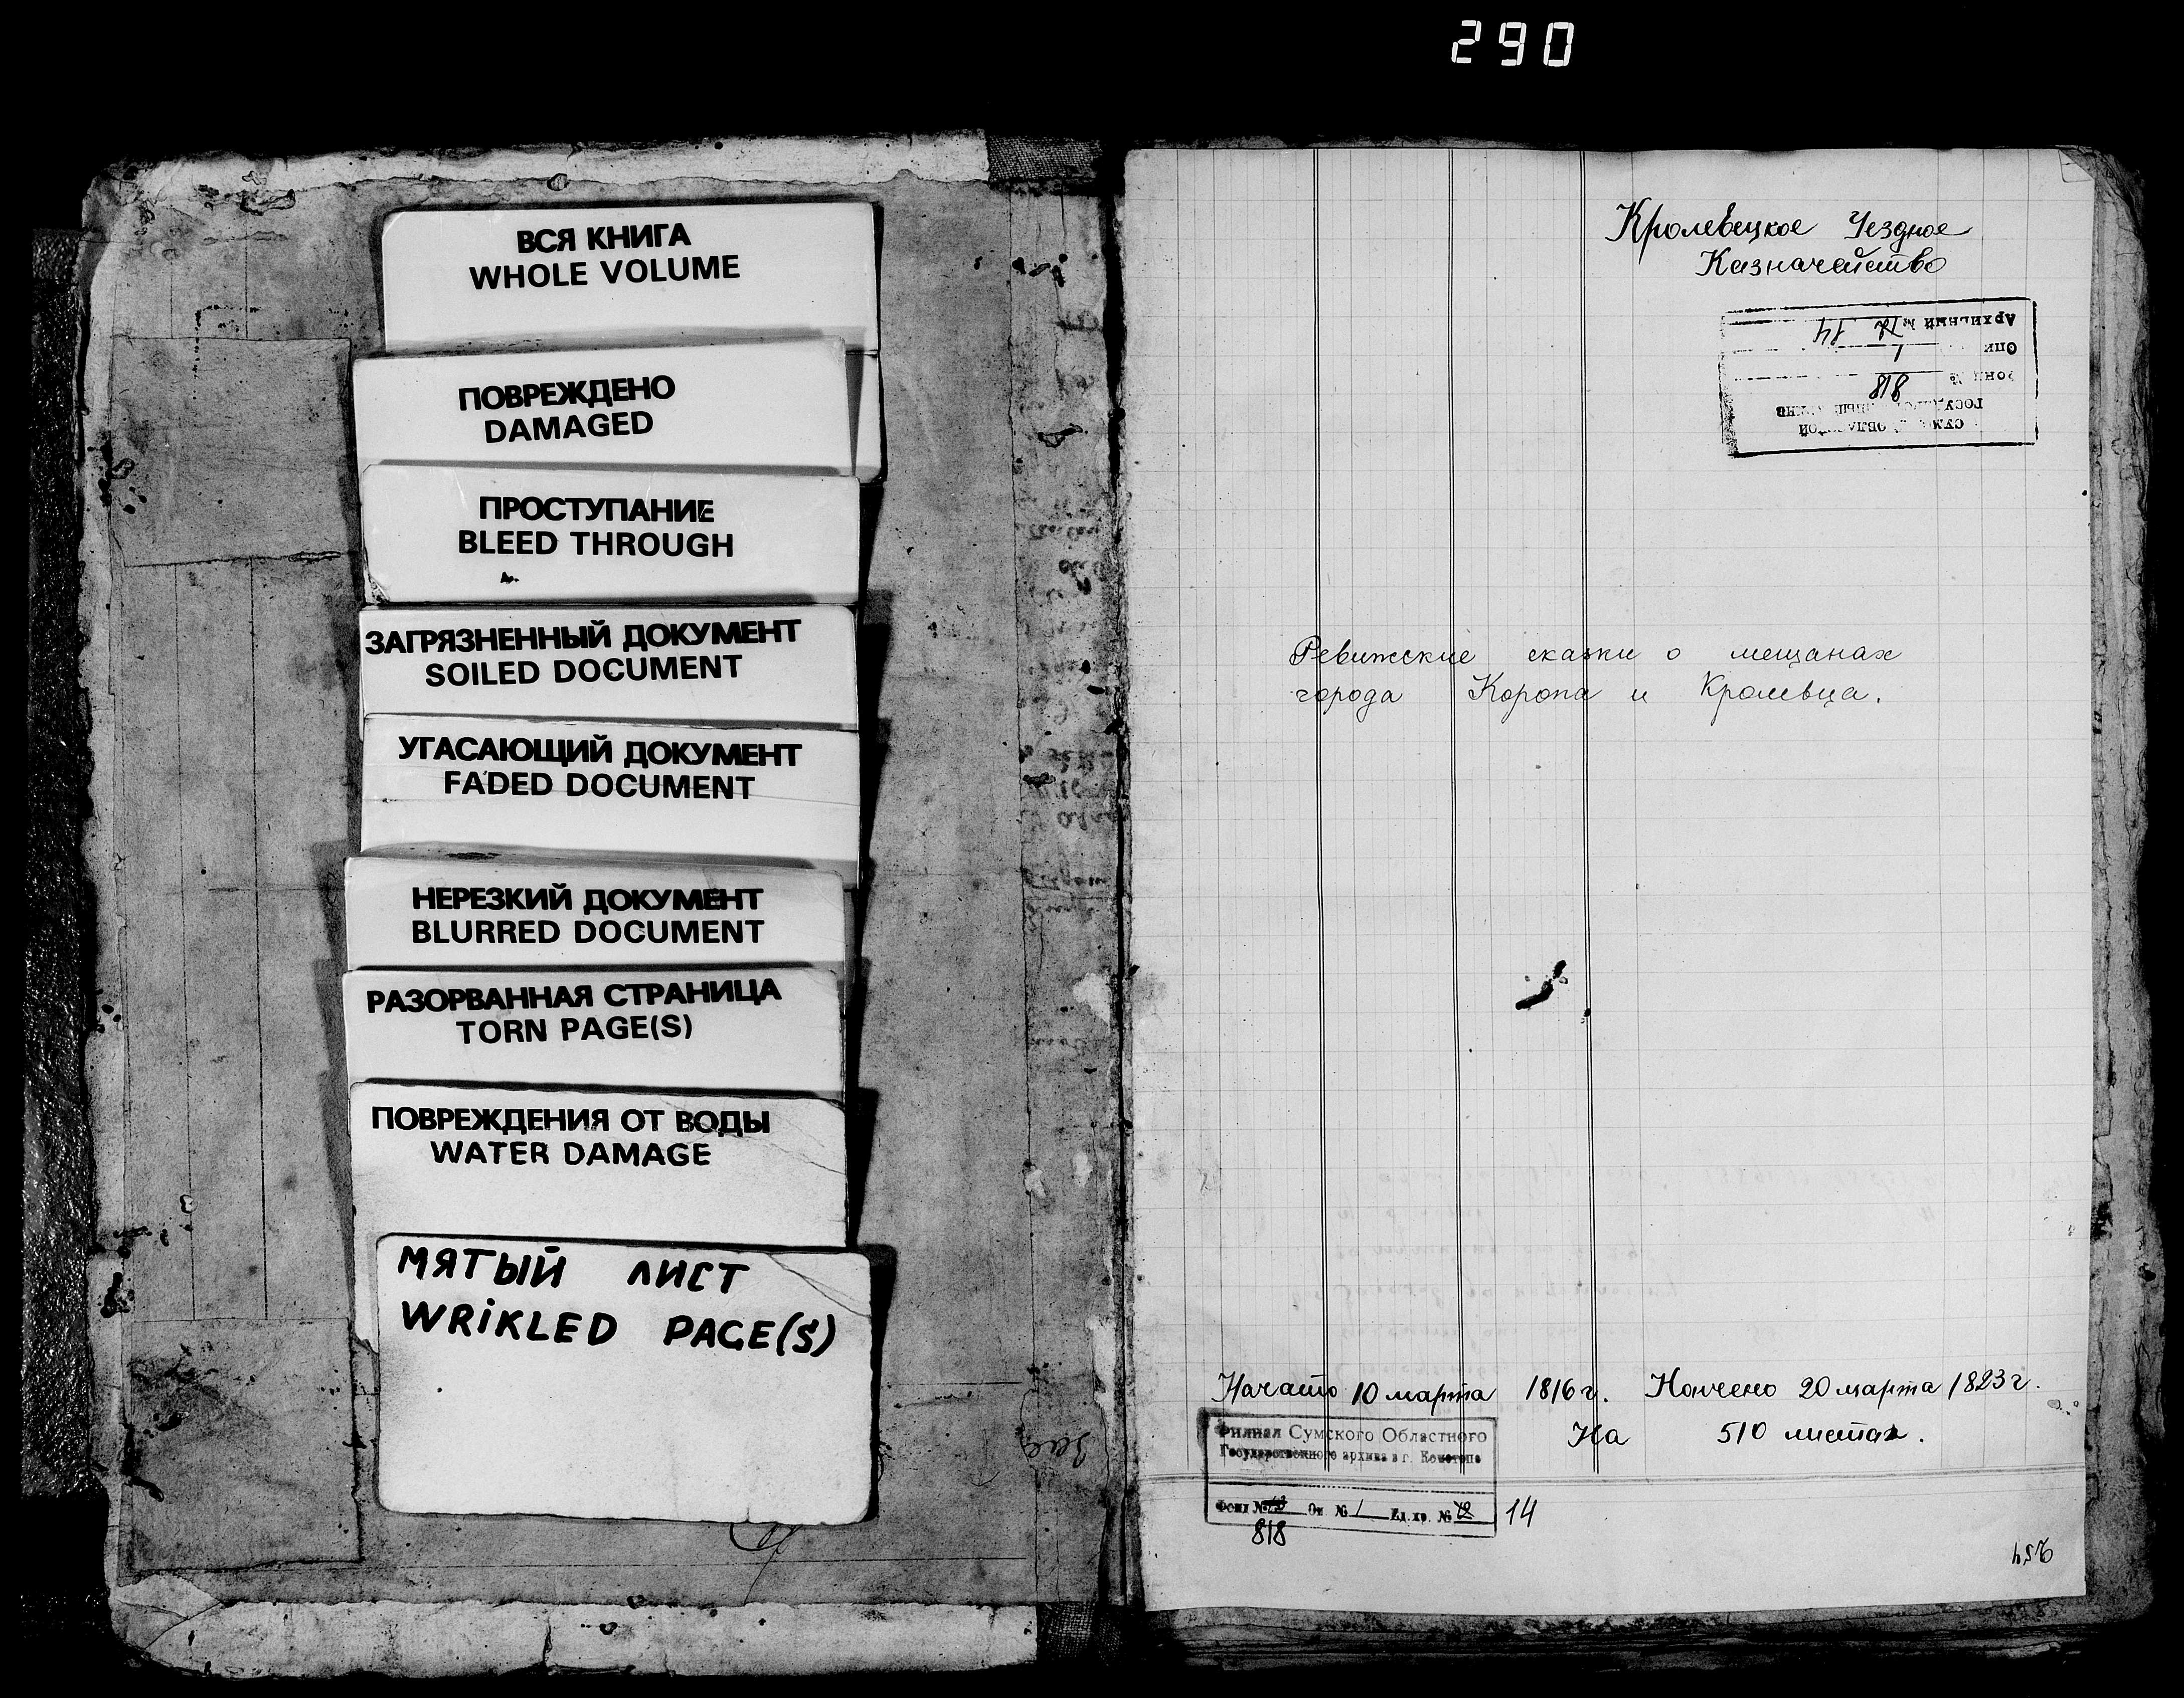 290
ВСЯ КНИГА
WHOLE VOLUME
ПОВРЕЖДЕНО
DAMAGED
ПРОСТУПАНИЕ
BLEED THROUGH
ЗАГРЯЗНЕННЫЙ ДОКУМЕНТ
SOILED DOCUMENT
УГАСАЮЩИЙ ДОКУМЕНТ
FADED DOCUMENT
НЕРЕЗКИЙ ДОКУМЕНТ
BLURRED DOCUMENT
РАЗОРВАННАЯ СТРАНИЦА
TORN PAGE(S)
ПОВРЕЖДЕНИЯ ОТ ВОДЫ
WATER DAMAGE
МЯТЫЙ ЛИСТ
WRIKLED PAGE(S)
Кролевецкое Уездное
Казначейство
АРХИВНЫЙ № 14
1
818
Ревижские сказки о мещанах
города Коропа и Кролевца.
Начато 10 марта 1816 г. Кончено 20 марта 1823 г.
На 510 листах.
Филиал Сумского Областного
Государственного архива в г. Конотопе
Фонд № Оп № 1 Ед. хр. № 14
818